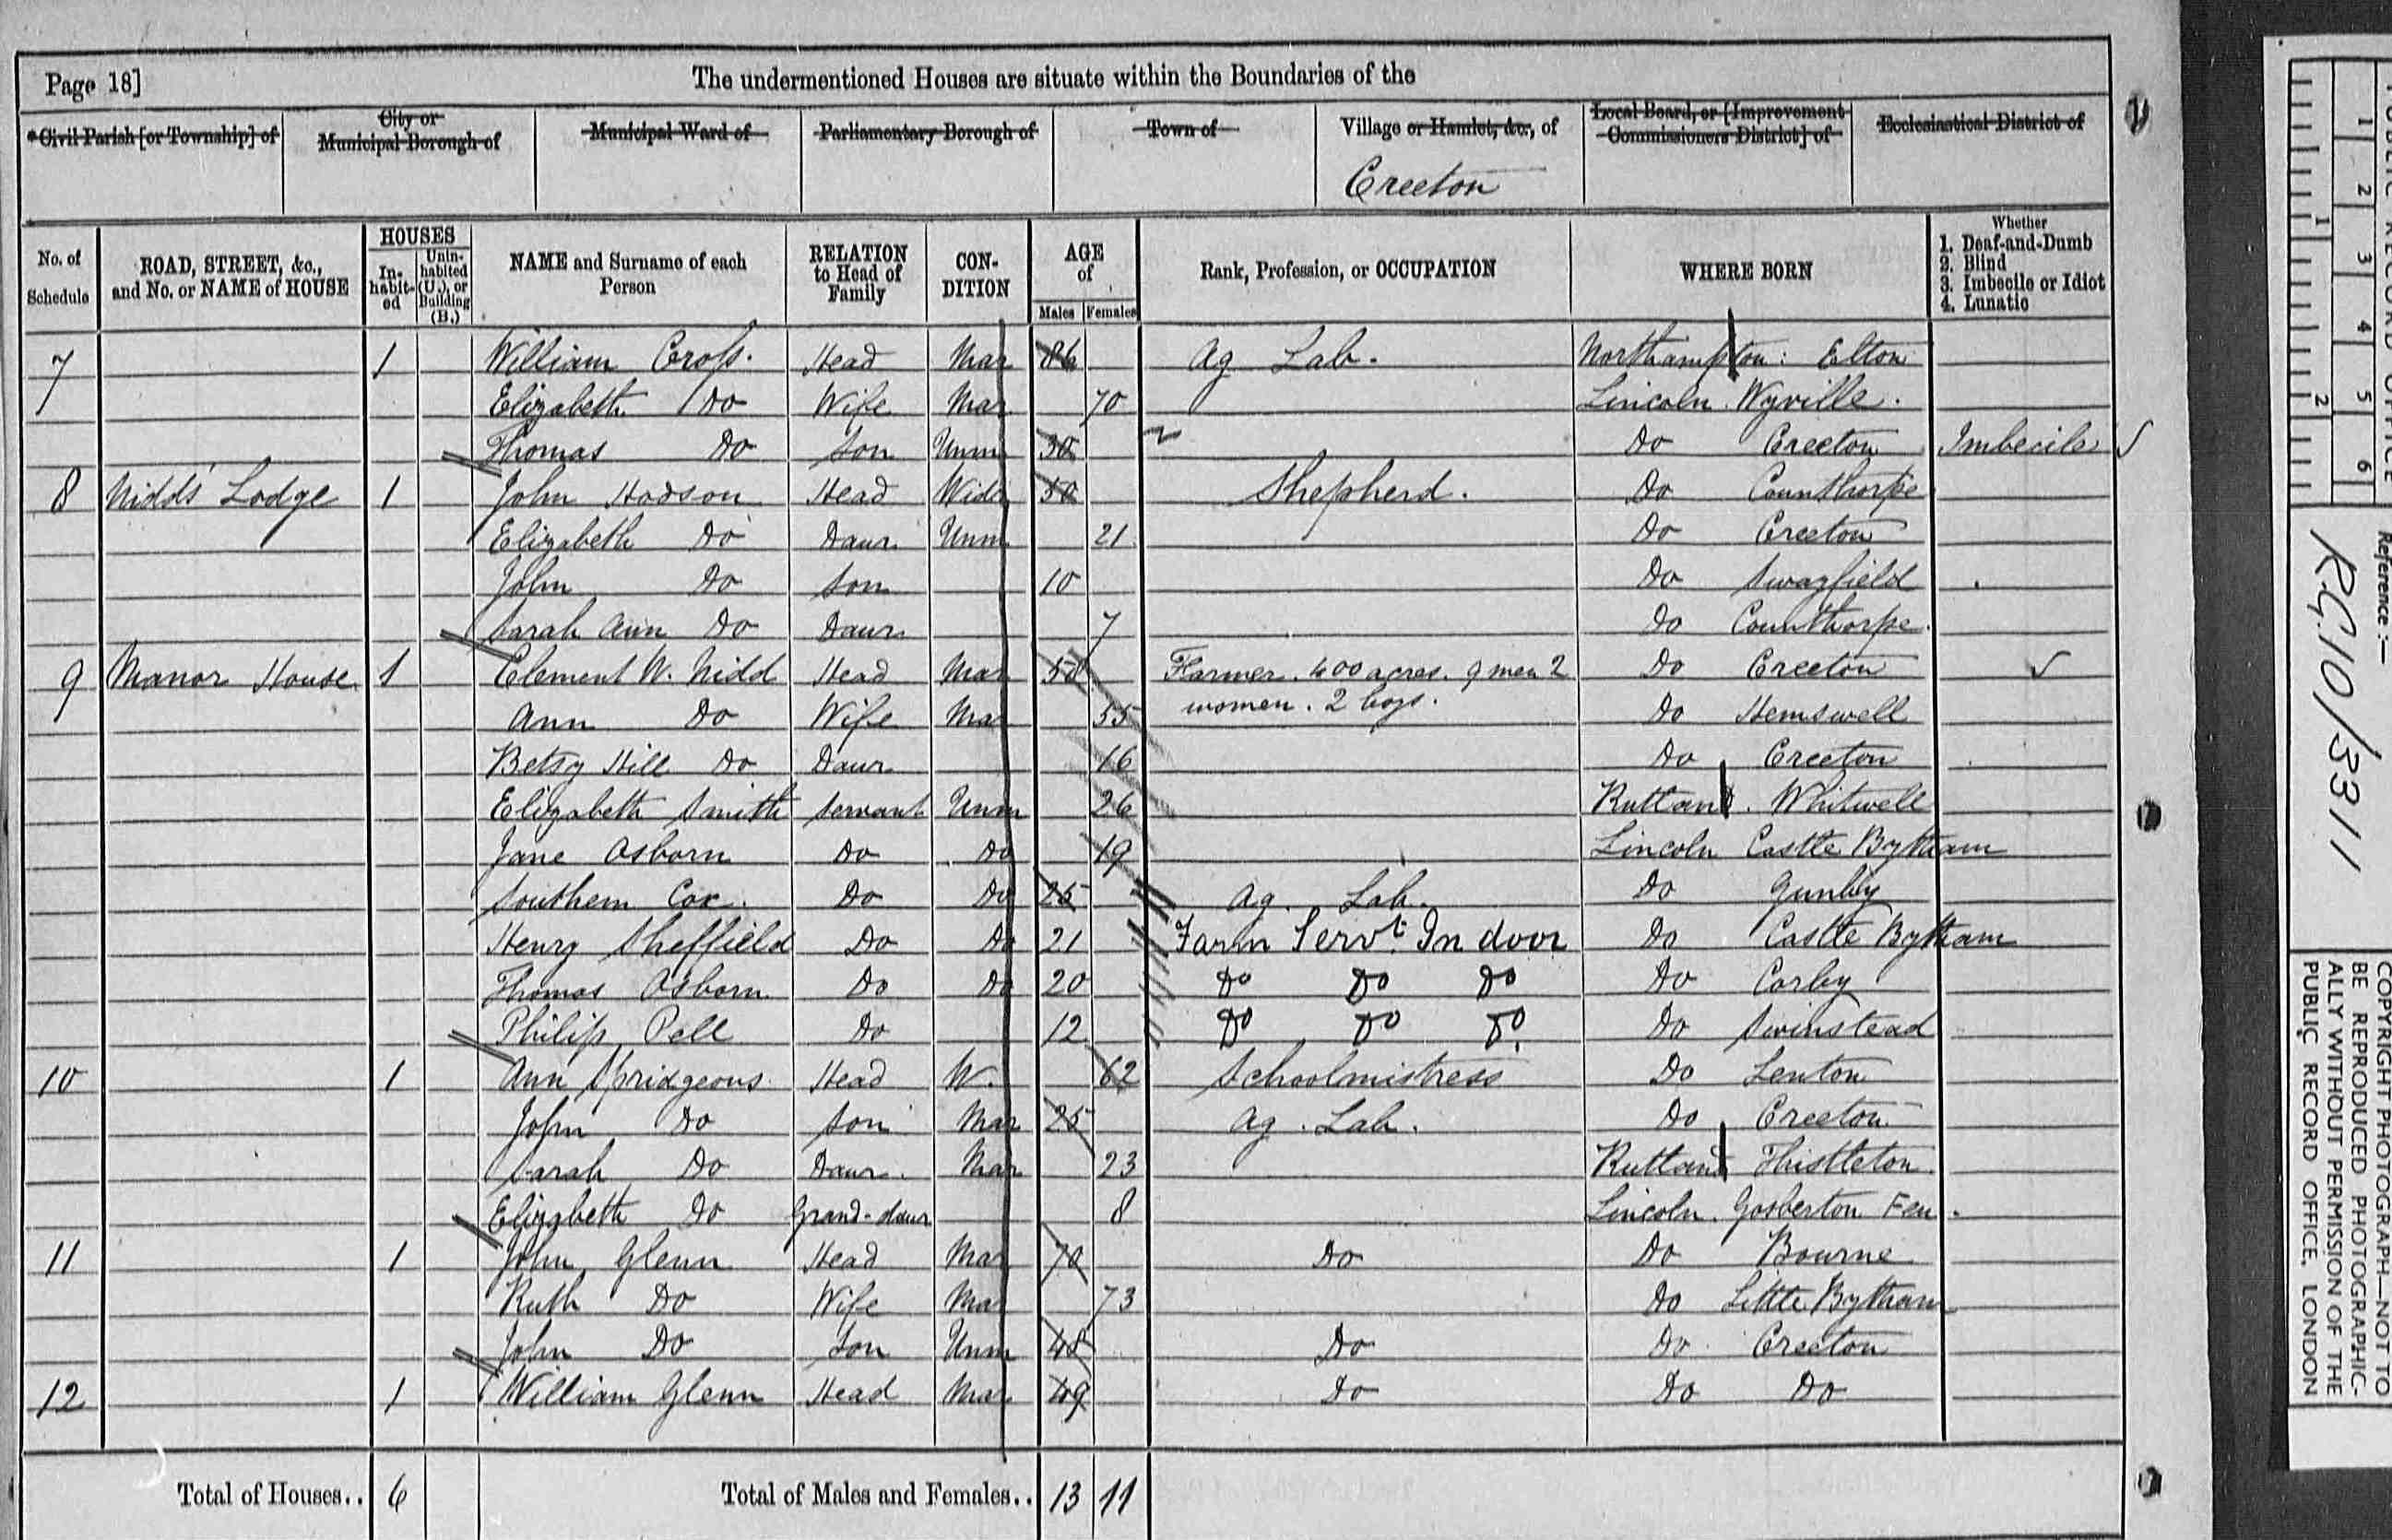 Page 18] The undermentioned Houses are situate within the Boundaries of the
*Civil Parish [or Township] of City or Municipal Borough of Municipal Ward of Parliamentary Borough of Town of Village or Hamlet, &c., of Local Board, or [Improvement Commissioners District] of Ecclesiastical District of
Creeton
No. of Schedule ROAD, STREET, &c., and No. or NAME of HOUSE HOUSES In-habit-ed Unin-habited (U.), or Building (B.) NAME and Surname of each Person RELATION to Head of Family CON-DITION AGE of Males Females Rank, Profession, or OCCUPATION WHERE BORN Whether 1. Deaf-and-Dumb 2. Blind 3. Imbecile or Idiot 4. Lunatic
7 1 William Cross. Head Mar 86 Ag Lab. Northampton: Elton
Elizabeth Do Wife Mar 70 Lincoln Wyville.
Thomas Do Son Unm 30 Do Creeton Imbecile
8 Nidds' Lodge 1 John Hodson Head Widr 50 Shepherd. Do Counthorpe
Elizabeth Do Daur. Unm 21 Do Creeton
John Do Son 10 Do Swayfield
Sarah Ann Do Daur. 7 Do Counthorpe.
9 Manor House 1 Clement W. Nidd Head Mar 50 Farmer. 400 acres. 9 men 2 Do Creeton
women. 2 boys.
Ann Do Wife Mar 55 Do Hemswell
Betsy Hill Do Daur. 16 Do Creeton
Elizabeth Smith Servant Unm 26 Rutland. Whitwell
Jane Osborn Do Do 19 Lincoln Castle Bytham
Southern Cox. Do Do 25 Ag. Lab. Do Gunby
Henry Sheffield Do Do 21 Farm Servt. In door Do Castle Bytham
Thomas Osborn. Do Do 20 Do Do Do Do Corby
Philip Pell Do 12 Do Do Do. Do Swinstead
10 1 Ann Spridgeons Head W. 62 Schoolmistress Do Lenton
John Do Son Mar 25 Ag. Lab. Do Creeton
Sarah Do Daur. Mar 23 Rutland Thistleton.
Elizabeth Do Grand-daur 8 Lincoln. Gosberton Fen.
11 1 John Glenn Head Mar 70 Do Do Bourne
Ruth Do Wife Mar 73 Do Little Bytham
John Do Son Unm 48 Do Do Creeton
12 1 William Glenn Head Mar 49 Do Do Do
Total of Houses.. 6 Total of Males and Females.. 13 11
1 2 3 4 5 6
1 2
PUBLIC RECORD OFFICE
Reference :—
RG 10/3311
COPYRIGHT PHOTOGRAPH—NOT TO
BE REPRODUCED PHOTOGRAPHIC-
ALLY WITHOUT PERMISSION OF THE
PUBLIC RECORD OFFICE, LONDON